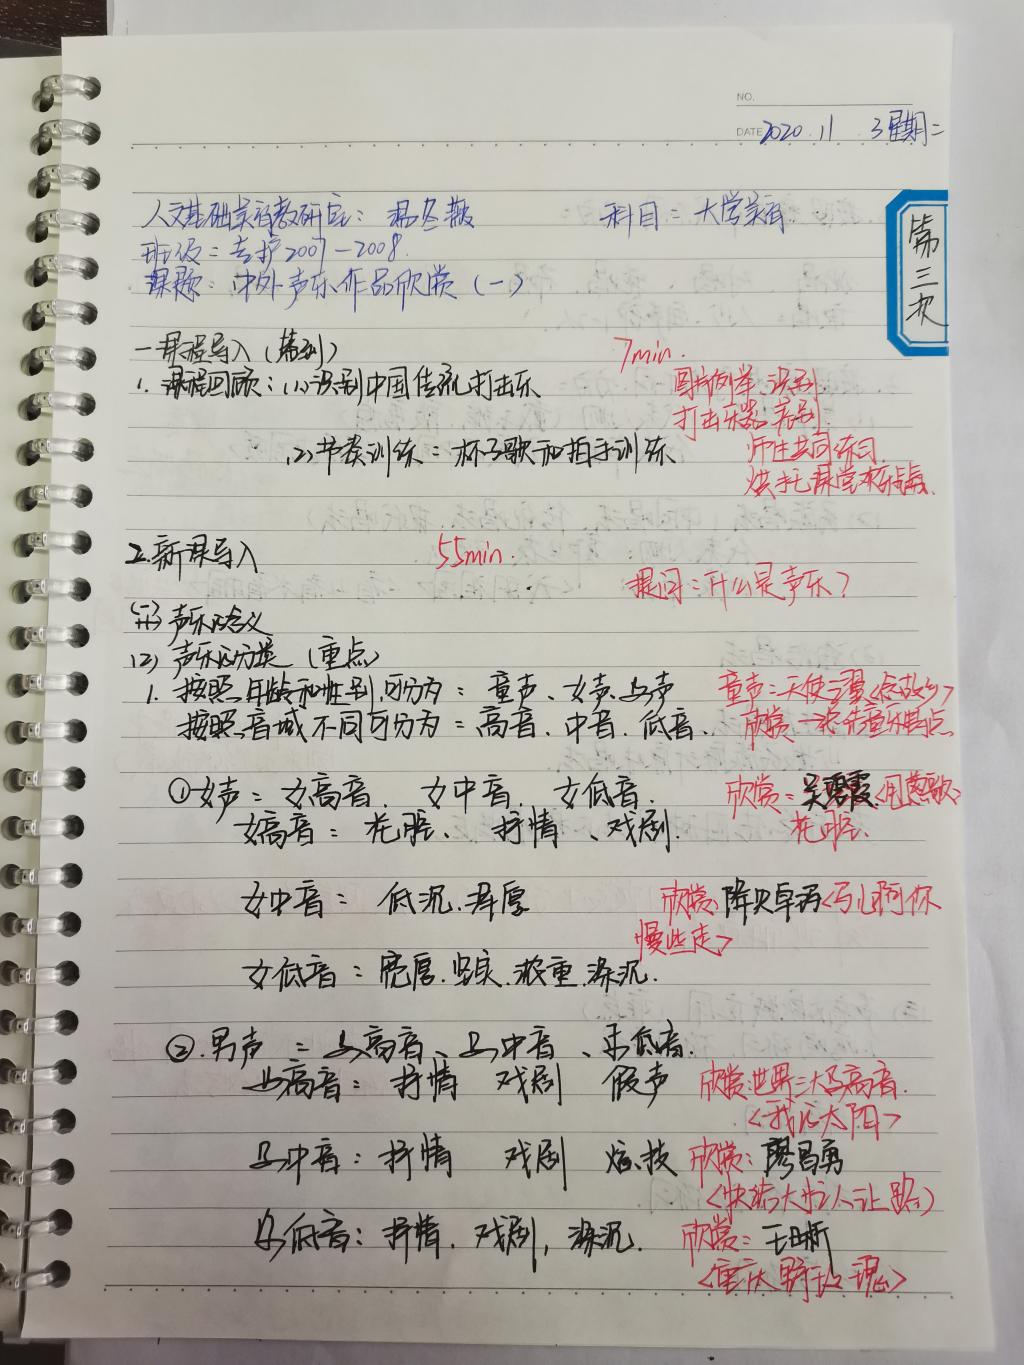 NO.
DATE 2020.11 3 星期二
第三次
人文基础美育教研室: 科目: 大学美育
班级: 护2007-2008.
课题: 中外声乐作品欣赏 (一)
一课程导入 7min.
1. 课程回顾: (1) 识别中国传统打击乐 图片例举、识别
打击乐器
(2) 节奏训练: 杯子歌和拍手训练 师生共同练习
烘托课堂
2.新课导入 55min.
提问: 什么是声乐?
(一) 声乐的含义
(2) 声乐的分类 (重点)
1. 按照年龄和性别,可分为: 童声、女声、男声 童声: 天使之翼
按照音域不同可分为: 高音、中音、低音. 欣赏
①女声: 女高音、女中音、女低音. 欣赏: 吴碧霞
女高音: 花腔、抒情、戏剧. 花腔、
女中音: 低沉、浑厚 欣赏: 降央卓玛<马儿啊你
慢些走>
女低音: 宽厚、坚实、浓重、深沉.
②.男声: 男高音、男中音、男低音.
男高音: 抒情 戏剧 假声 欣赏: 世界三大男高音.
<我的太阳>
男中音: 抒情 戏剧 炫技 欣赏: 廖昌勇
<快给大忙人让路>
男低音: 抒情、戏剧, 深沉. 欣赏: 王晰